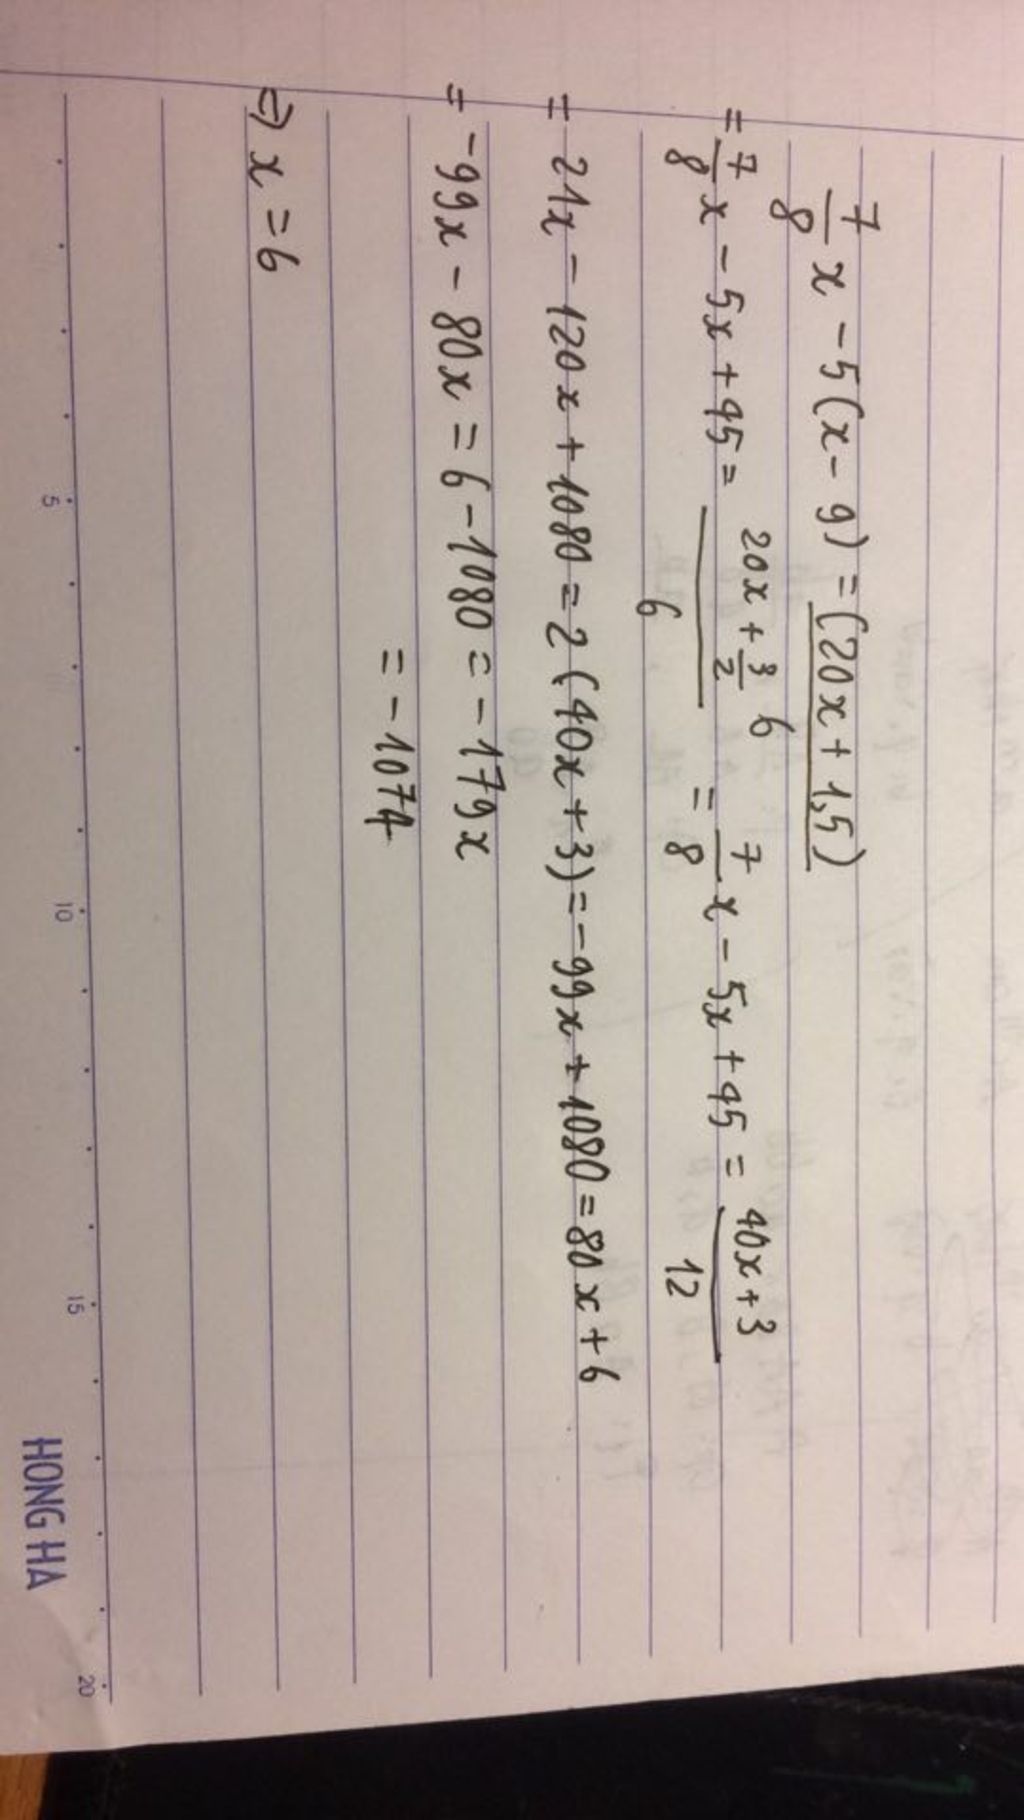 7/8 x - 5(x - 9) = (20x + 1,5)
6
= 7/8 x - 5x + 45 = (20x + 3/2)/6 = 7/8 x - 5x + 45 = (40x + 3)/12
= 21x - 120x + 1080 = 2(40x + 3) = -99x + 1080 = 80x + 6
= -99x - 80x = 6 - 1080 = -179x
= -1074
=> x = 6
5 10 15 20
HONG HA